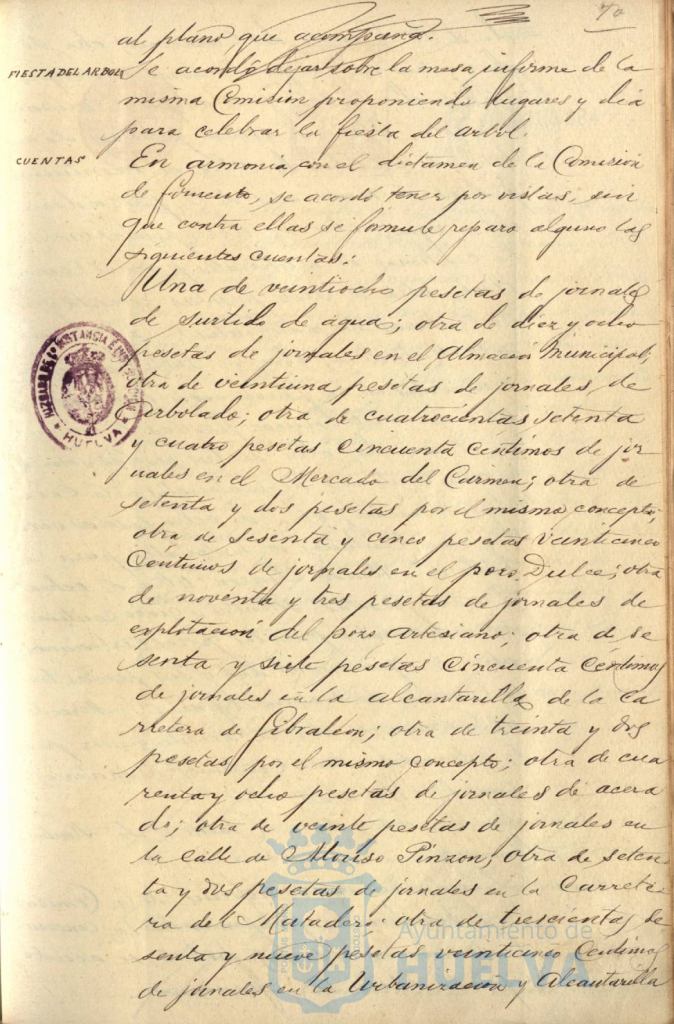 70
al plano, que acompaña.
FIESTA DEL ARBOL
Se acordó dejar sobre la mesa informe de la
misma Comision proponiendo lugares y dia
para celebrar la fiesta del arbol.
CUENTAS
En armonia con el dictamen de la Comision
de fomento, se acordó tener por vistas, sin
que contra ellas se formule reparo alguno las
siguientes cuentas:
Una de veintiocho pesetas de jornales
de surtido de agua; otra de diez y ocho
pesetas de jornales en el Almacén Municipal;
otra de veintiuna pesetas de jornales de
Arbolado; otra de cuatrocientas setenta
y cuatro pesetas cincuenta centimos de jor
nales en el Mercado del Carmen; otra de
setenta y dos pesetas por el mismo concepto;
otra de sesenta y cinco pesetas veinticinco
Centimos de jornales en el pozo Dulce; otra
de noventa y tres pesetas de jornales de
explotacion del pozo Artesiano; otra de se
senta y siete pesetas Cincuenta Centimos
de jornales en la alcantarilla de la Ca
rretera de Gibraleon; otra de treinta y dos
pesetas por el mismo concepto; otra de cua
renta y ocho pesetas de jornales de acera
do; otra de veinte pesetas de jornales en
la calle de Alonso Pinzon; otra de seten
ta y dos pesetas de jornales en la Carrete
ra del Matadero; otra de trescientas se
senta y nueve pesetas veinticinco Centimos
de jornales en la Urbanizacion y Alcantarilla
HUELVA
Ayuntamiento de
HUELVA